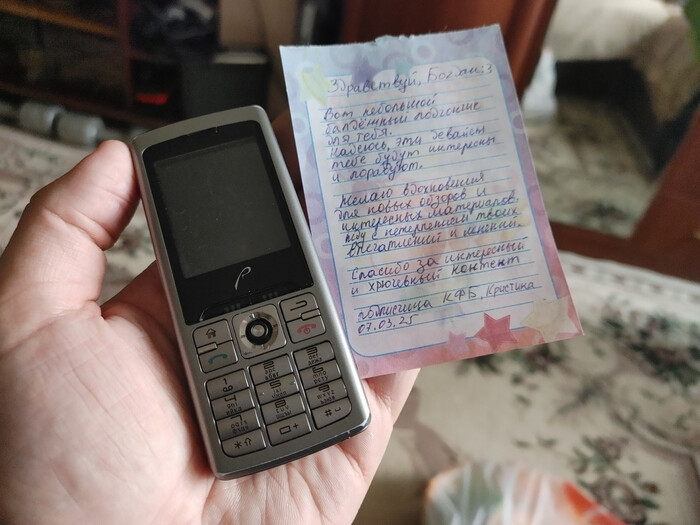 Здравствуй, Богдан:3
Вот небольшой
балдёжный подгончик
для тебя.
Надеюсь, эти девайсы
тебе будут интересны
и порадуют.
Желаю вдохновения
для новых обзоров и
интересных материалов.
Жду с нетерпением твоих
впечатлений и мнений.
Спасибо за интересный
и хрюгивный контент
подписчица КФБ, Кристина
07.03.25